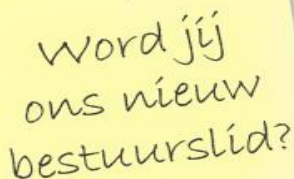 Word jij
ons nieuw
bestuurslid?